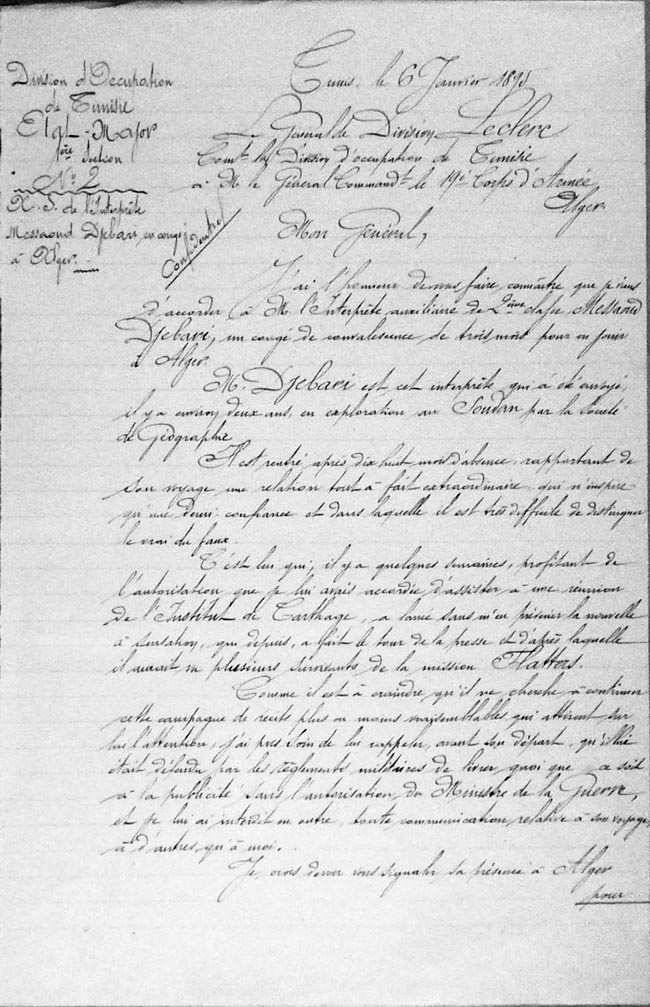 Division d'Occupation
de Tunisie
Etat-Major
1ère Section
N° 2
A. S. de l'Interprète
Messaoud Djebari, en congé
à Alger.
Confidentiel
Tunis, le 6 Janvier 1895
Le Général de Division Leclerc
Comt la Division d'occupation de Tunisie
à M. le Général Commandt le 19e Corps d'Armée
Alger.
Mon Général,
J'ai l'honneur de vous faire connaître que je viens
d'accorder à M. l'Interprète auxiliaire de 2ème classe Messaoud
Djebari, un congé de convalescence de trois mois pour en jouir
à Alger.
M. Djebari est cet interprète qui a été envoyé,
il y a environ deux ans, en exploration au Soudan par la Société
de Géographie
Il est rentré après dix huit mois d'absence, rapportant de
son voyage une relation tout à fait extraordinaire qui n'inspire
qu'une demi-confiance et dans laquelle il est très difficile de distinguer
le vrai du faux.
C'est lui qui, il y a quelques semaines, profitant de
l'autorisation que je lui avais accordée d'assister à une réunion
de l'Institut de Carthage, a lancé sans m'en prévenir la nouvelle
à sensation, qui depuis, a fait le tour de la presse et d'après laquelle
il aurait vu plusieurs survivants de la mission Flatters.
Comme il est à craindre qu'il ne cherche à continuer
cette campagne de récits plus ou moins vraisemblables qui attirent sur
lui l'attention, j'ai pris soin de lui rappeler, avant son départ, qu'il lui
était défendu par les règlements militaires de livrer quoi que ce soit
à la publicité sans l'autorisation du Ministre de la Guerre,
et je lui ai interdit en outre, toute communication relative à son voyage,
à d'autres qu'à moi.
Je crois devoir vous signaler sa présence à Alger
pour